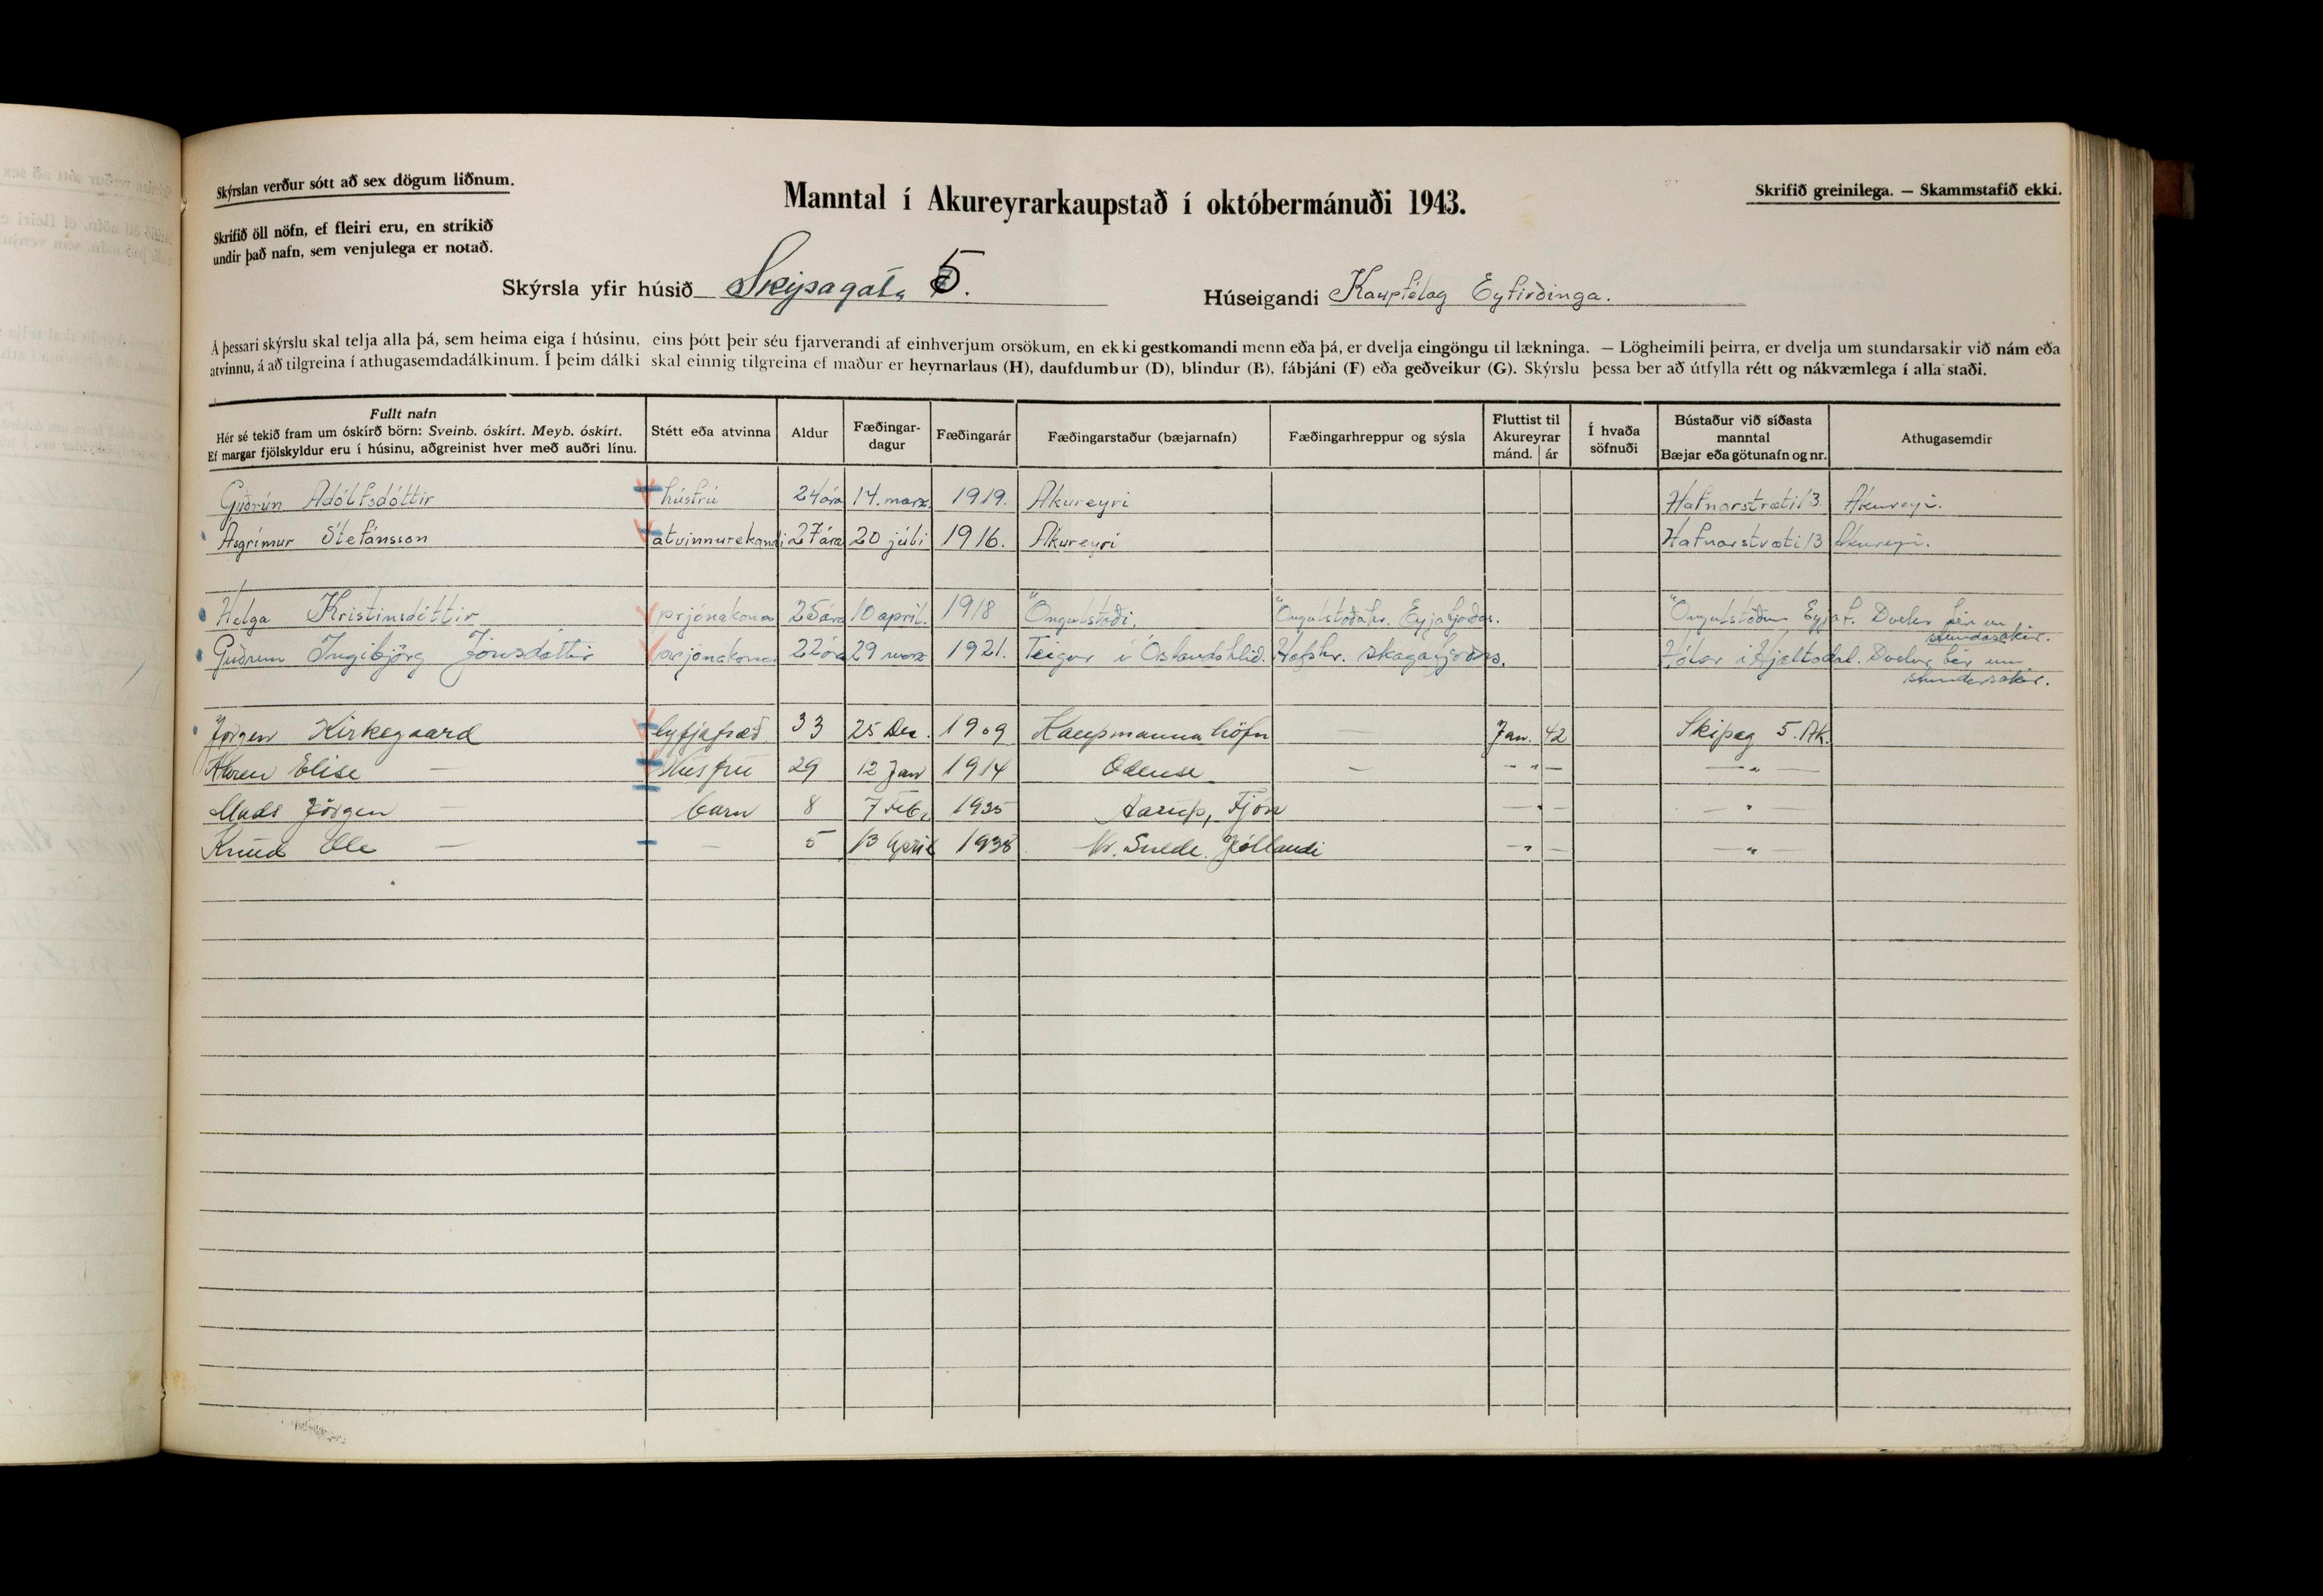 Skýrslan verður sótt að sex dögum liðnum.
Manntal í Akureyrarkaupstað í októbermánuði 1943.
Skrifið greinilega. — Skammstafið ekki.
Skrifið öll nöfn, ef fleiri eru, en strikið
undir það nafn, sem venjulega er notað.
Skýrsla yfir húsið Skipagata 5.
Húseigandi Kaupfélag Eyfirðinga.
Á þessari skýrslu skal telja alla þá, sem heima eiga í húsinu, eins þótt þeir séu fjarverandi af einhverjum orsökum, en ekki gestkomandi menn eða þá, er dvelja eingöngu til lækninga. — Lögheimili þeirra, er dvelja um stundarsakir við nám eða
atvinnu, á að tilgreina í athugasemdadálkinum. Í þeim dálki skal einnig tilgreina ef maður er heyrnarlaus (H), daufdumbur (D), blindur (B), fábjáni (F) eða geðveikur (G). Skýrslu þessa ber að útfylla rétt og nákvæmlega í alla staði.
Fullt nafn
Hér sé tekið fram um óskírð börn: Sveinb. óskírt. Meyb. óskírt.
Ef margar fjölskyldur eru í húsinu, aðgreinist hver með auðri línu.
Stétt eða atvinna
Aldur
Fæðingar-
dagur
Fæðingarár
Fæðingarstaður (bæjarnafn)
Fæðingarhreppur og sýsla
Fluttist til
Akureyrar
mánd. ár
Í hvaða
söfnuði
Bústaður við síðasta
manntal
Bæjar eða götunafn og nr.
Athugasemdir
Guðrún Adólfsdóttir húsfrú 24 ára 14. marz. 1919. Akureyri Hafnarstræti 13 Akureyri.
Ásgrímur Stefánsson atvinnurekandi 27 ára 20 júlí 1916. Akureyri Hafnarstræti 13 Akureyri.
Helga Kristinsdóttir prjónakona 25 ára 10 apríl. 1918 Öngulstaði. Öngulstaðahr. Eyjafjarðars. Öngulstöðum Eyjaf. Dvelur hér um
stundarsakir.
Guðrún Ingibjörg Jónsdóttir prjónakona 22 ára 29 marz 1921. Teigur í Óslandshlíð. Hofshr. Skagafjarðars. Hólar í Hjaltadal. Dvelur hér um
stundarsakir.
Jørgen Kirkegaard lyfjafræð. 33 25 Des. 1909 Kaupmannahöfn Jan. 42 Skipag 5. Ak.
Karen Elise — Húsfrú 29 12 Jan 1914 Odense — - " — — " —
Mads Jörgen — barn 8 7 Feb. 1935 Aarup, Fjón — " - — " —
Knud Ole — — 5 13 Apríl 1938 Nr. Snede. Jótlandi — " — — " —